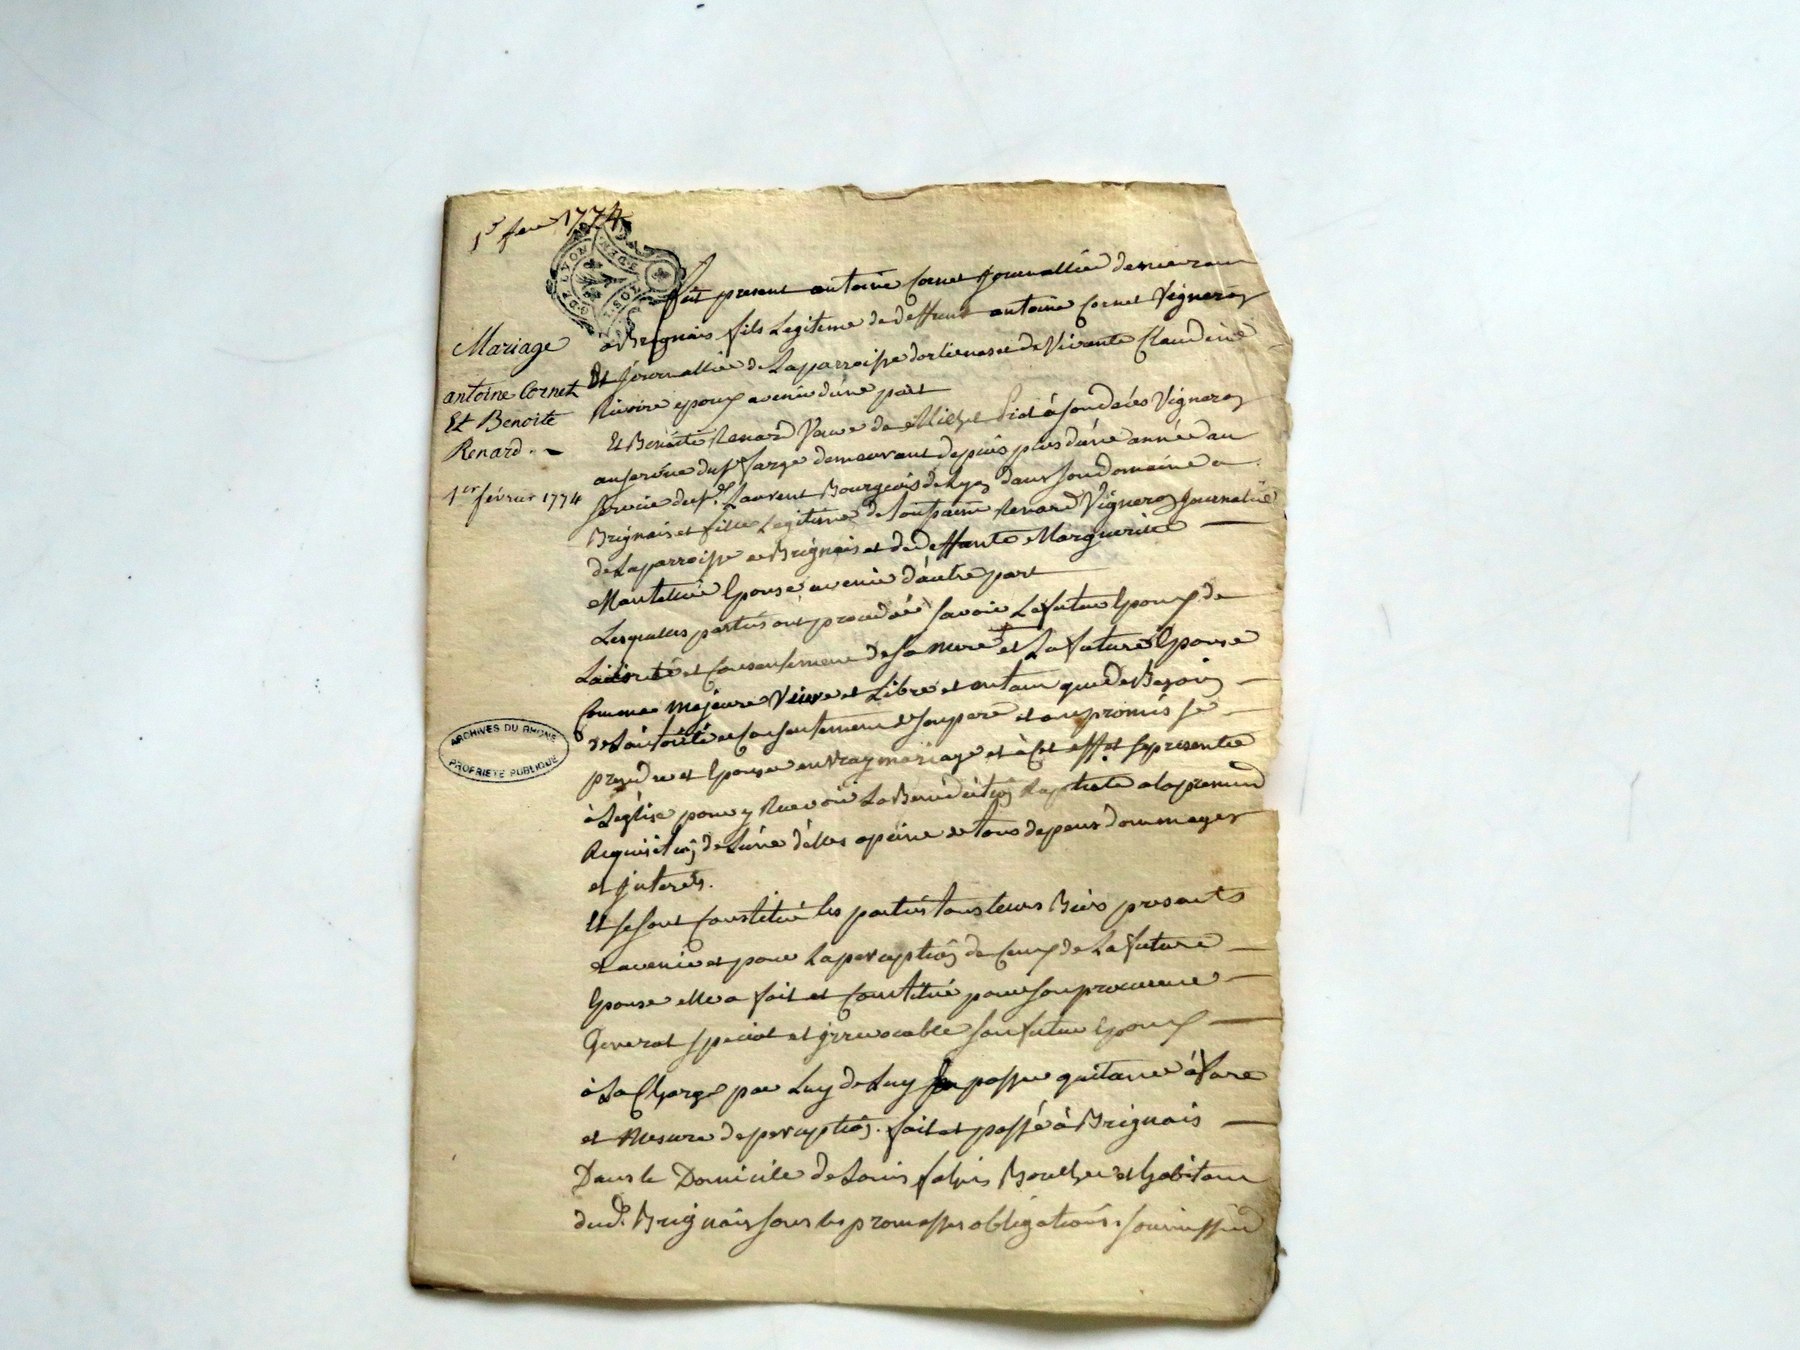 1er fev 1774
DE LYON
Mariage
antoine Cornet
Et Benoite
Renard.
1er février 1774
ARCHIVES DU RHONE
PROPRIETE PUBLIQUE
fut present antoine Cornet Journallié demeurant
a Brignais fils Legitime de deffunt antoine Cornet Vigneron
Et Journallié de La parroisse dorlienas et de Vivante Claudine
Rivoire epoux avenir dune part
Et Benoite Renard Veuve de Michel Vigneron
au service du Sr farge demeurant depuis plus dune année au
service du Sr Laurent Bourgeois de Lyon dans son domaine a
Brignais et fille Legitime de Renard Vigneron Journalié
de La parroisse de Brignais et de deffunte Marguerite
Epouse avenir dautre part
Lesquelles parties ont procedé savoir Le futur Epoux de
Lautorité et Consentement de sa mere et La future Epouse
Comme majeure Veuve et Libre et entant que de Besoin
de Lautorité et Consentement de son pere et ont promis se
prendre et Epouser en vray mariage et à Cet effet se presenter
à Leglise pour y Recevoir La Benediction Nuptiale a la premiere
Requisition de Lune delles apeine de tous depens dommages
et jnterets.
Et se sont Constitué les parties tous leurs Biens presents
et avenir et pour La perception de Ceux de La future
Epouse elle a fait et Constitué pour son procureur
General special et jrrevocable son futur Epoux
à La Charge par Luy de Luy passer quitance à fure
et Mesure de perception. fait et passé à Brignais
Dans le Domicile de Louis Boucher et habitant
dud. Brignais sous les promesses obligations. soumissions